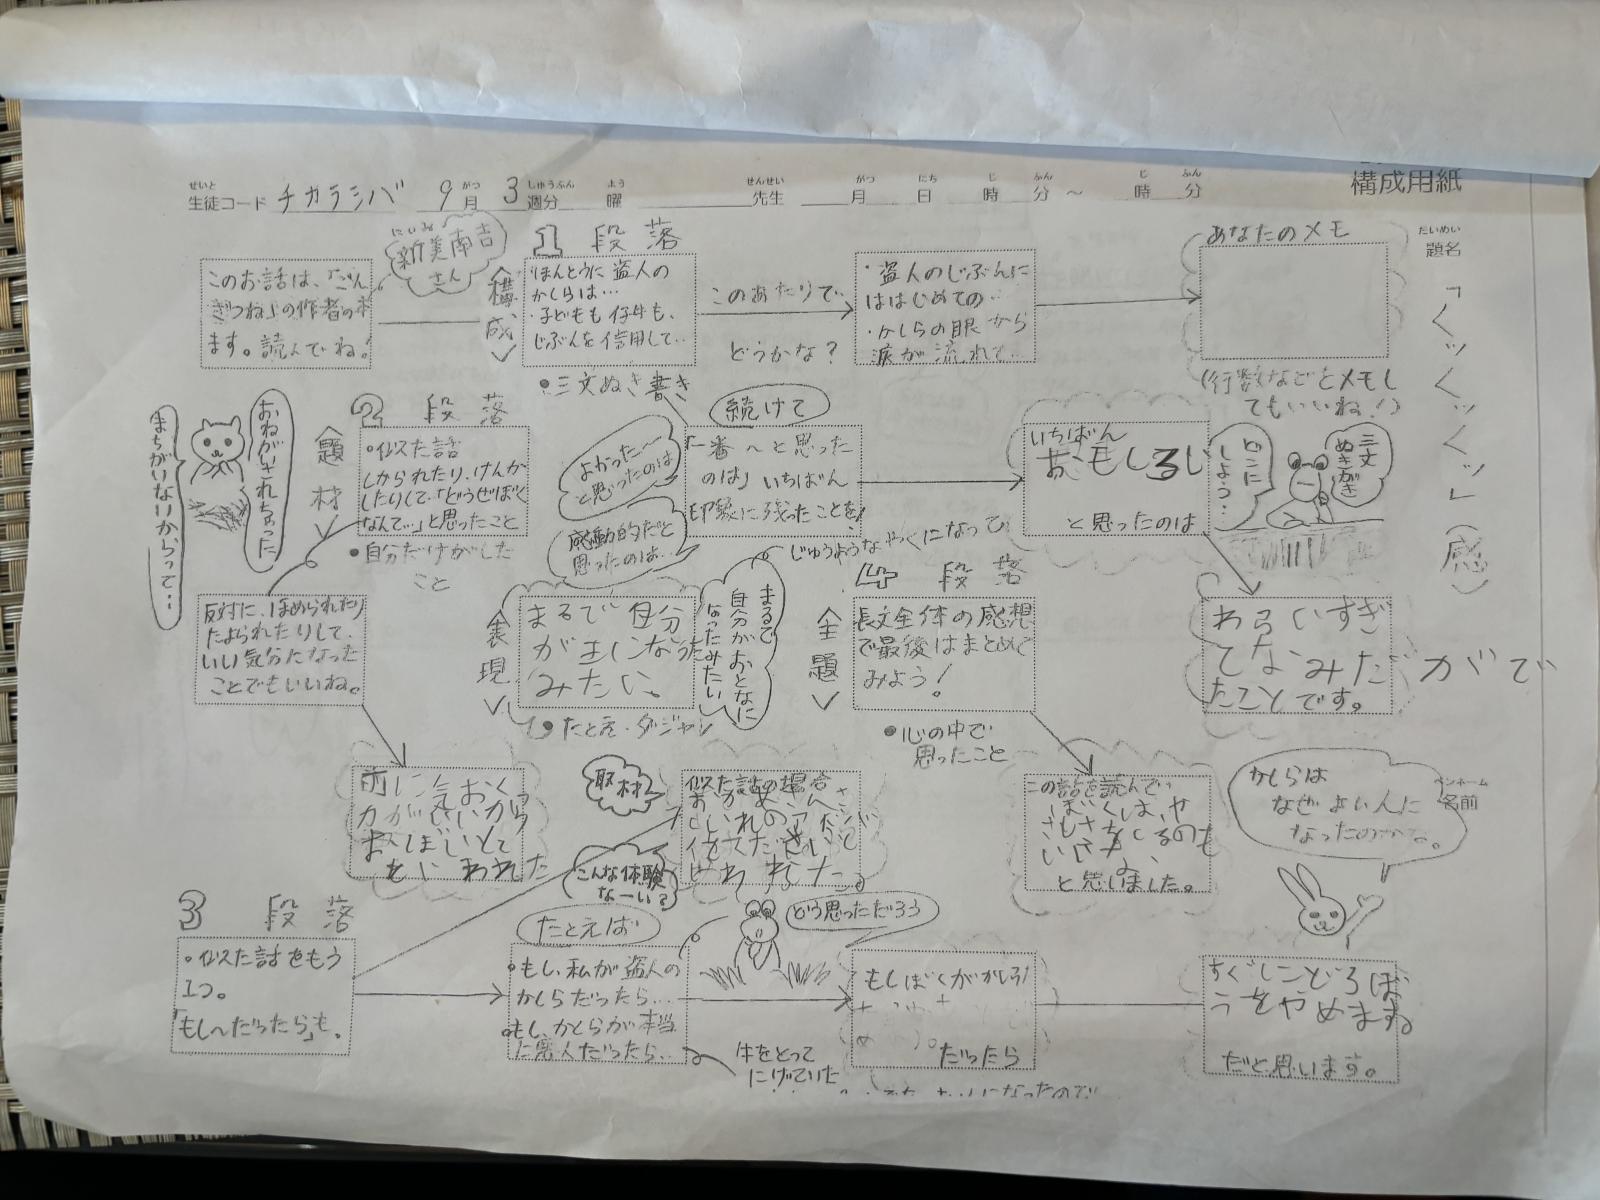 構成用紙
せいと
生徒コード チカラシバ 9月 3週分 曜 先生 月 日 時 分 ～ 時 分
がつ しゅうぶん よう せんせい がつ にち じ ふん じ ふん
だいめい
題名
「クックックッ」(感)
ペンネーム
名前
1 段落
<構成>
にいみ
新美南吉
さん
このお話は、「ごん
ぎつね」の作者の本
ます。読んでね!
・ほんとうに盗人の
かしらは…
・子どもも仔牛も、
じぶんを信用して…
●三文ぬき書き
このあたりで…
どうかな?
・盗人のじぶんに
ははじめての…
・かしらの眼から
涙が流れて…
あなたのメモ
(行数などをメモし
てもいいね!)
2 段落
<題材>
おねがいされちゃった
まちがいないからって…
・似た話
しかられたり、けんか
したりして、「どうせぼく
なんて…」と思ったこと
●自分だけがした
こと
反対に、ほめられたり
たよられたりして、
いい気分になった
ことでもいいね。
続けて
よかった～
と思ったのは
感動的だと
思ったのは…
「一番～と思った
のは」いちばん
印象に残ったことを!
いちばん
おもしろい
と思ったのは
どこに
しよう…
三文
ぬきがき
わらいすぎ
てなみだがで
たことです。
<表現>
まるで自分
が主になった
みたい。
●たとえ・ダジャレ
まるで
自分がおとなに
なったみたい
じゅうようなやくになって
4 段落
<主題>
長文全体の感想
で最後はまとめて
みよう!
●心の中で
思ったこと
この話を読んで、
ぼくは、や
さしさ
と思いました。
かしらは
なぜよい人に
なったのかな。
取材
こんな体験
なーい?
似た話の場合
3 段落
・似た話をもう
1つ。
「もし～だったら」も。
たとえば
・もし、私が盗人の
かしらだったら…
・もし、かしらが本当
に悪人だったら…
牛をとって
にげていた
どう思っただろう
もしぼくがかしら
だったら
すぐにどろぼ
うをやめますね
だと思います。